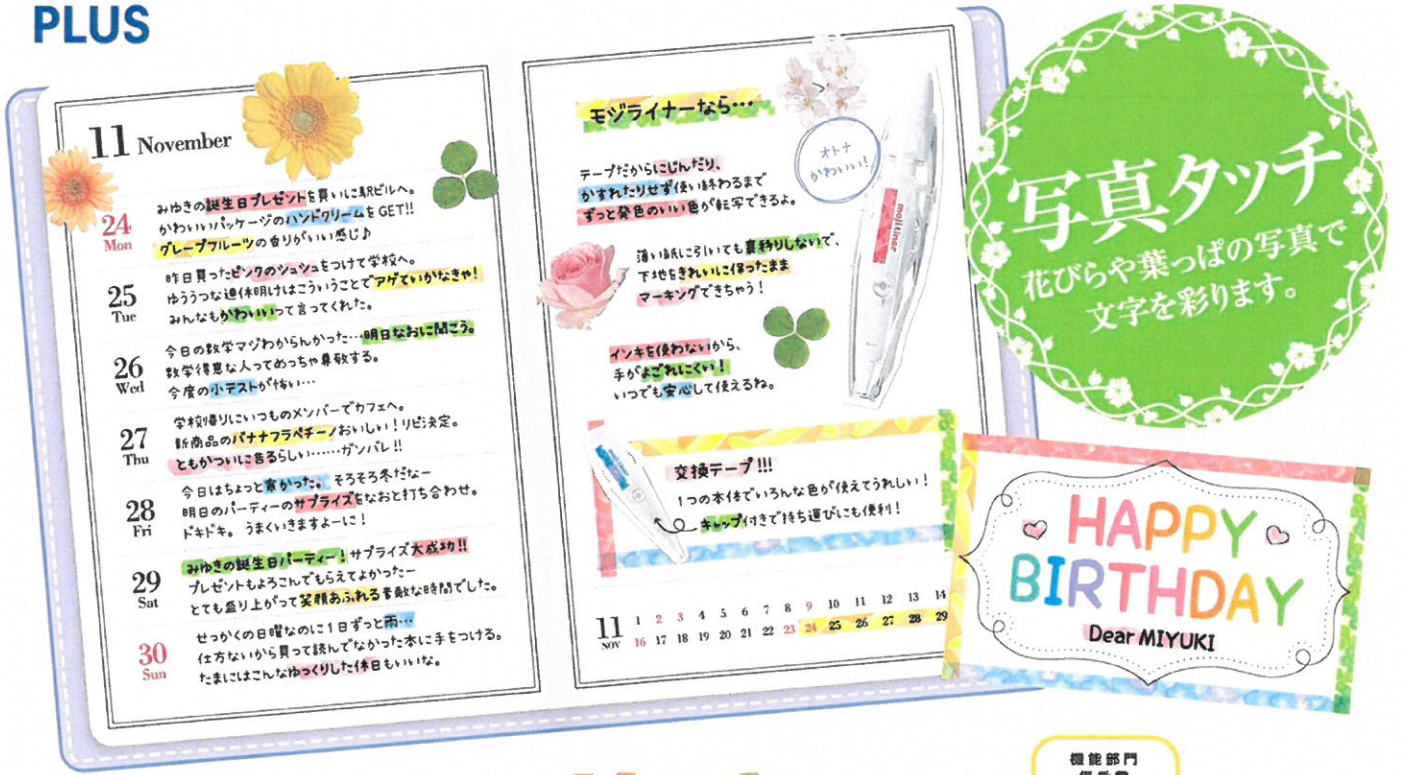 PLUS
11 November
24
Mon
みゆきの誕生日プレゼントを買いに駅ビルへ。
かわいいパッケージのハンドクリームをGET!!
グレープフルーツの香りがいい感じ♪
25
Tue
昨日買ったピンクのシュシュをつけて学校へ。
ゆううつな連休明けはこういうことでアゲていかなきゃ!
みんなもかわいいって言ってくれた。
26
Wed
今日の数学マジわからんかった…明日なおに聞こう。
数学得意な人ってめっちゃ尊敬する。
今度の小テストが怖い…
27
Thu
学校帰りにいつものメンバーでカフェへ。
新商品のバナナフラペチーノおいしい!リピ決定。
ともがついに告るらしい……ガンバレ!!
28
Fri
今日はちょっと寒かった。そろそろ冬だなー
明日のパーティーのサプライズをなおと打ち合わせ。
ドキドキ。うまくいきますよーに!
29
Sat
みゆきの誕生日パーティー!サプライズ大成功!!
プレゼントもよろこんでもらえてよかったー
とても盛り上がって笑顔あふれる素敵な時間でした。
30
Sun
せっかくの日曜なのに1日ずっと雨…
仕方ないから買って読んでなかった本に手をつける。
たまにはこんなゆっくりした休日もいいな。
モヂライナーなら…
オトナ
かわいい!
テープだからにじんだり、
かすれたりせず使い終わるまで
ずっと発色のいい色が転写できるよ。
mojiliner
薄い紙に引いても裏移りしないで、
下地をきれいに保ったまま
マーキングできちゃう!
インキを使わないから、
手がよごれにくい!
いつでも安心して使えるね。
交換テープ!!!
1つの本体でいろんな色が使えてうれしい!
キャップ付きで持ち運びにも便利!
11
NOV
1 2 3 4 5 6 7 8 9 10 11 12 13 14
16 17 18 19 20 21 22 23 24 25 26 27 28 29
写真タッチ
花びらや葉っぱの写真で
文字を彩ります。
HAPPY
BIRTHDAY
Dear MIYUKI
機能部門